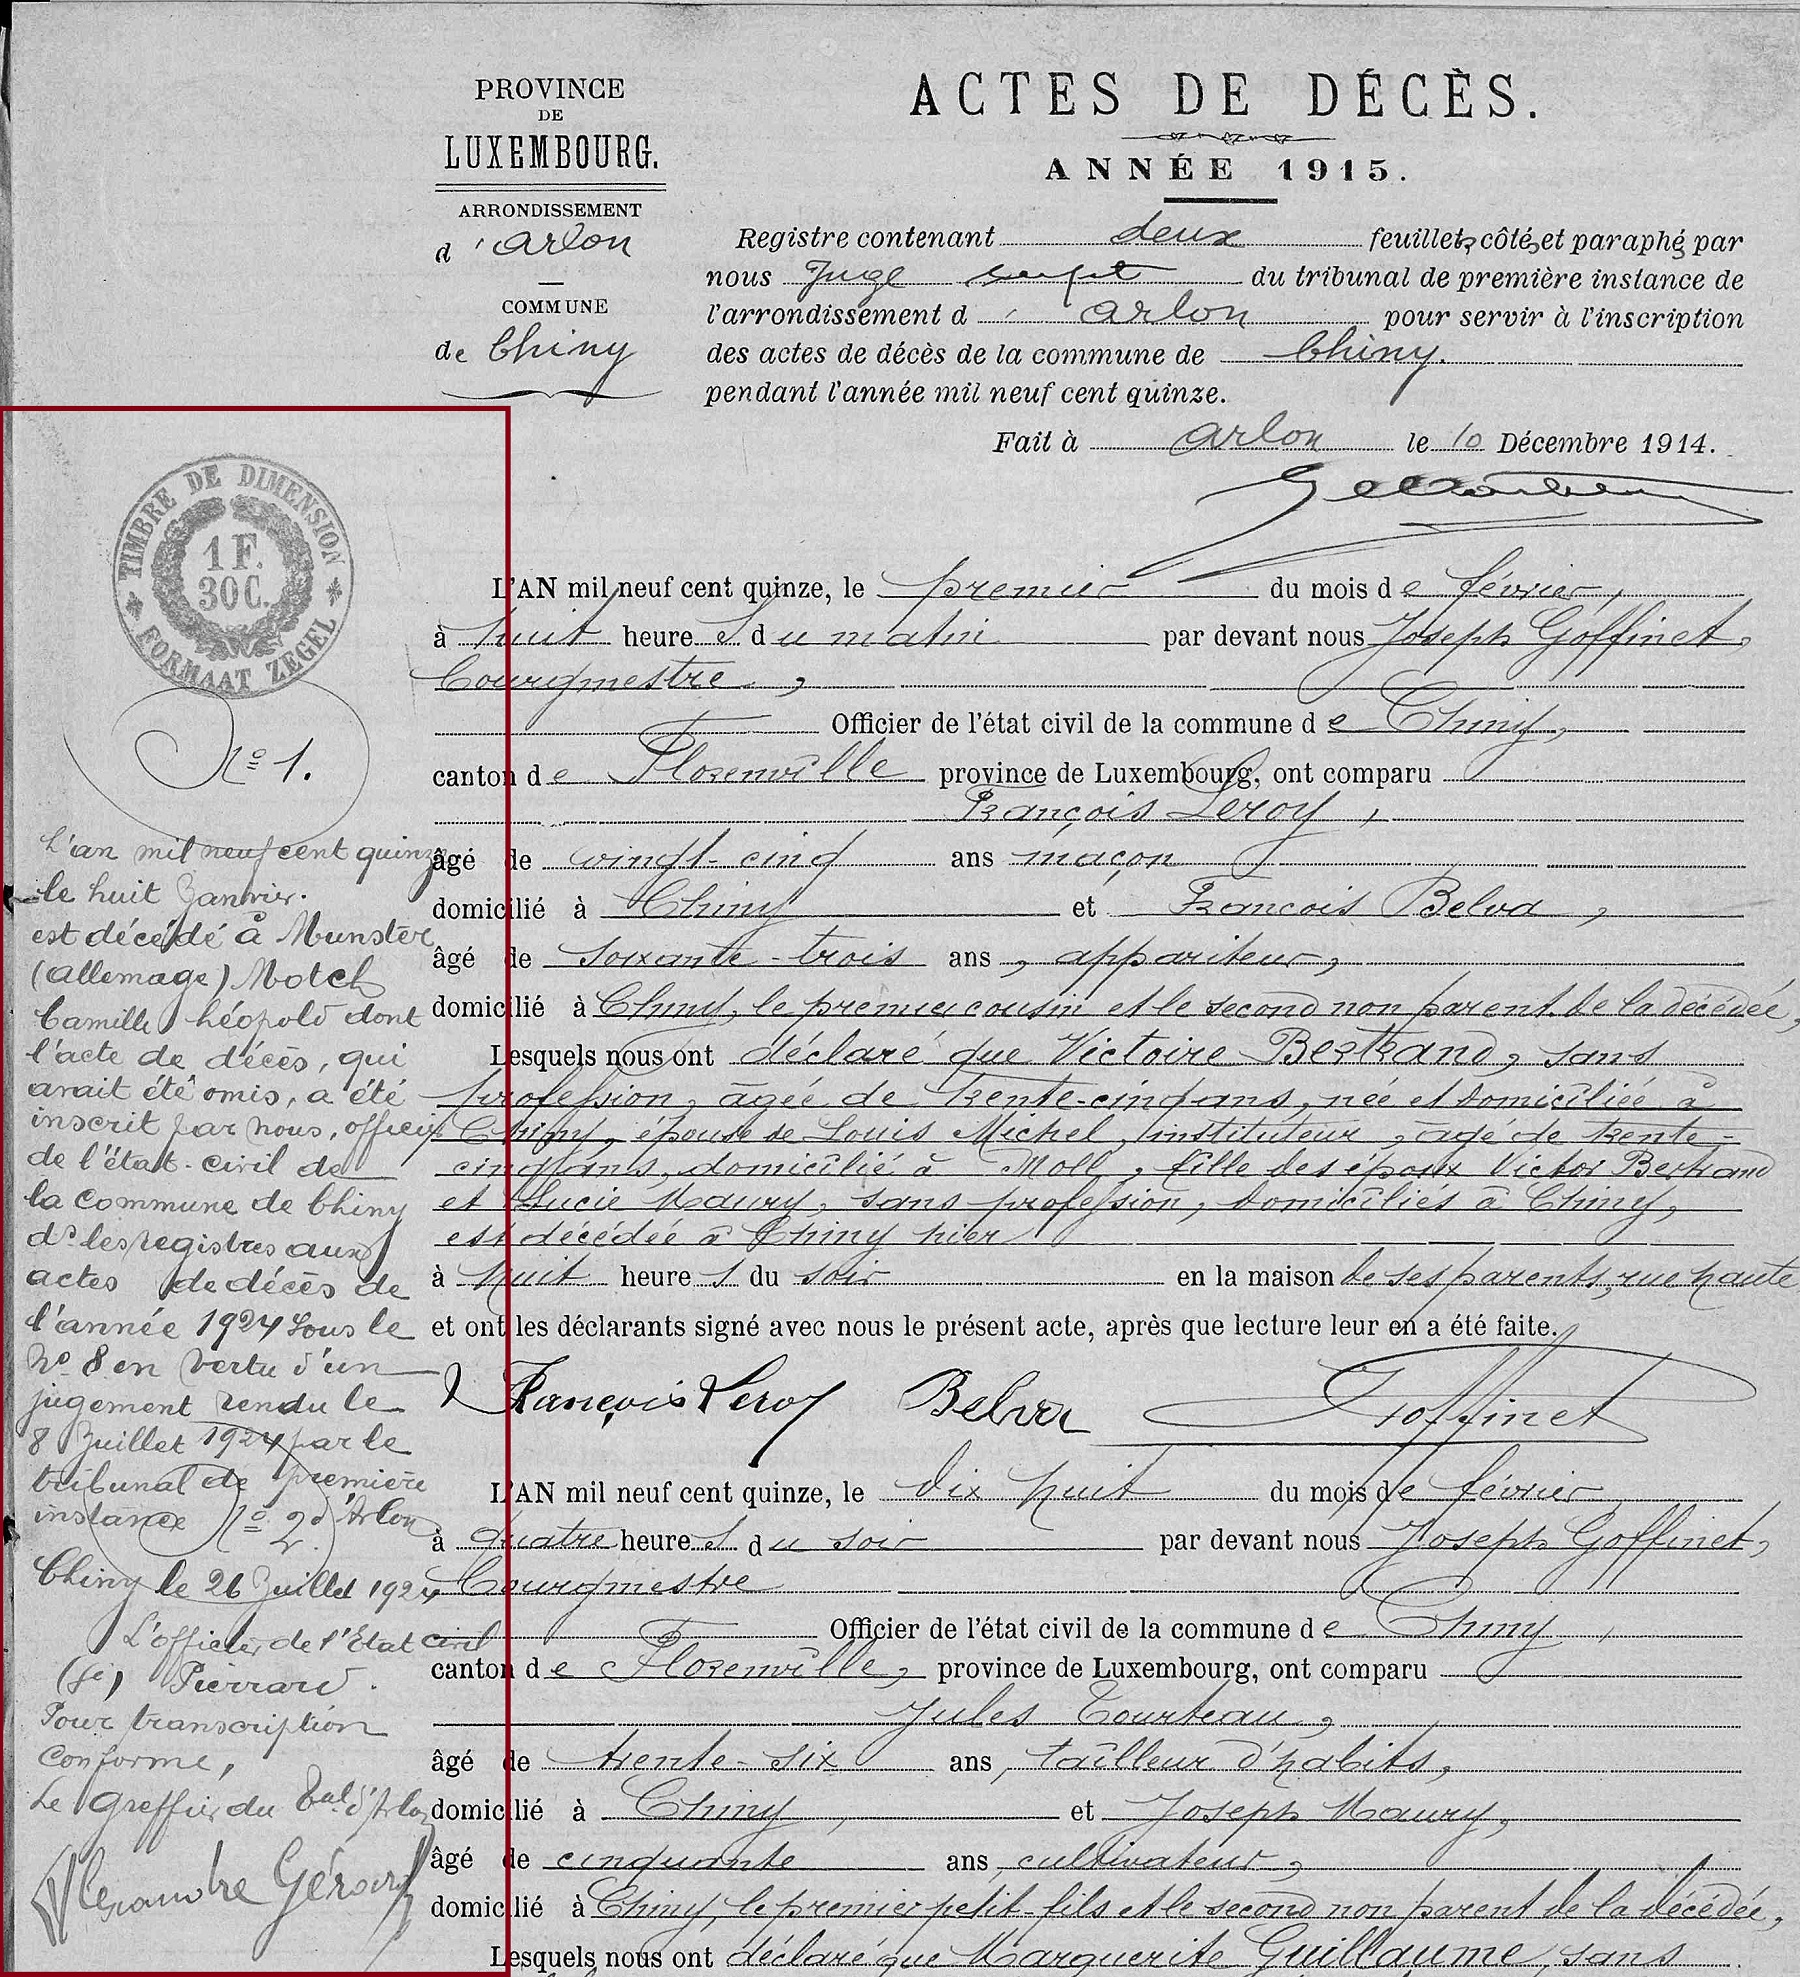 PROVINCE
DE
LUXEMBOURG.
ARRONDISSEMENT
d'Arlon
COMMUNE
de Chiny
ACTES DE DÉCÈS.
ANNÉE 1915.
Registre contenant deux feuillets, côtés et paraphés par
nous Juge du tribunal de première instance de
l'arrondissement d'Arlon pour servir à l'inscription
des actes de décès de la commune de Chiny.
pendant l'année mil neuf cent quinze.
Fait à Arlon le 10 Décembre 1914.
TIMBRE DE DIMENSION
1 F.
30 C.
FORMAAT ZEGEL
No 1.
L'an mil neuf cent quinze
le huit Janvier.
est décédé à Munster
(allemage) Motch
Camille Léopold dont
l'acte de décès, qui
avait été omis, a été
inscrit par nous, officier
de l'état-civil de
la commune de Chiny
ds les registres aux
actes de décès de
l'année 1924 sous le
no 8 en vertu d'un
jugement rendu le
8 Juillet 1924 par le
tribunal de première
instance d'Arlon
No 2.
Chiny le 26 Juillet 1924
L'officier de l'Etat civil
(sé) Pierrard.
Pour transcription
conforme,
Le Greffier du Bal d'Arlon
Alexandre Gérard
L'AN mil neuf cent quinze, le premier du mois de février,
à huit heures du matin par devant nous Joseph Goffinet,
Bourgmestre,
Officier de l'état civil de la commune de Chiny,
canton de Florenville province de Luxembourg, ont comparu
François Leroy,
âgé de vingt-cinq ans maçon
domicilié à Chiny et François Belva,
âgé de soixante-trois ans, appariteur,
domicilié à Chiny, le premier cousin et le second non parent de la décédée,
Lesquels nous ont déclaré que Victoire Bertrand, sans
profession, âgée de trente-cinq ans, née et domiciliée à
Chiny, épouse de Louis Michel, instituteur, âgé de trente-
cinq ans, domicilié à Moll, fille des époux Victor Bertrand
et Lucie Maury, sans profession, domiciliés à Chiny,
est décédée à Chiny hier
à huit heures du soir en la maison de ses parents, rue haute
et ont les déclarants signé avec nous le présent acte, après que lecture leur en a été faite.
François Leroy Belva Goffinet
L'AN mil neuf cent quinze, le dix huit du mois de février
à quatre heures du soir par devant nous Joseph Goffinet,
Bourgmestre
Officier de l'état civil de la commune de Chiny,
canton de Florenville, province de Luxembourg, ont comparu
Jules Tourteau,
âgé de trente-six ans, tailleur d'habits,
domicilié à Chiny, et Joseph Maury,
âgé de cinquante ans, cultivateur,
domicilié à Chiny, le premier petit-fils et le second non parent de la décédée,
Lesquels nous ont déclaré que Marguerite Guillaume, sans